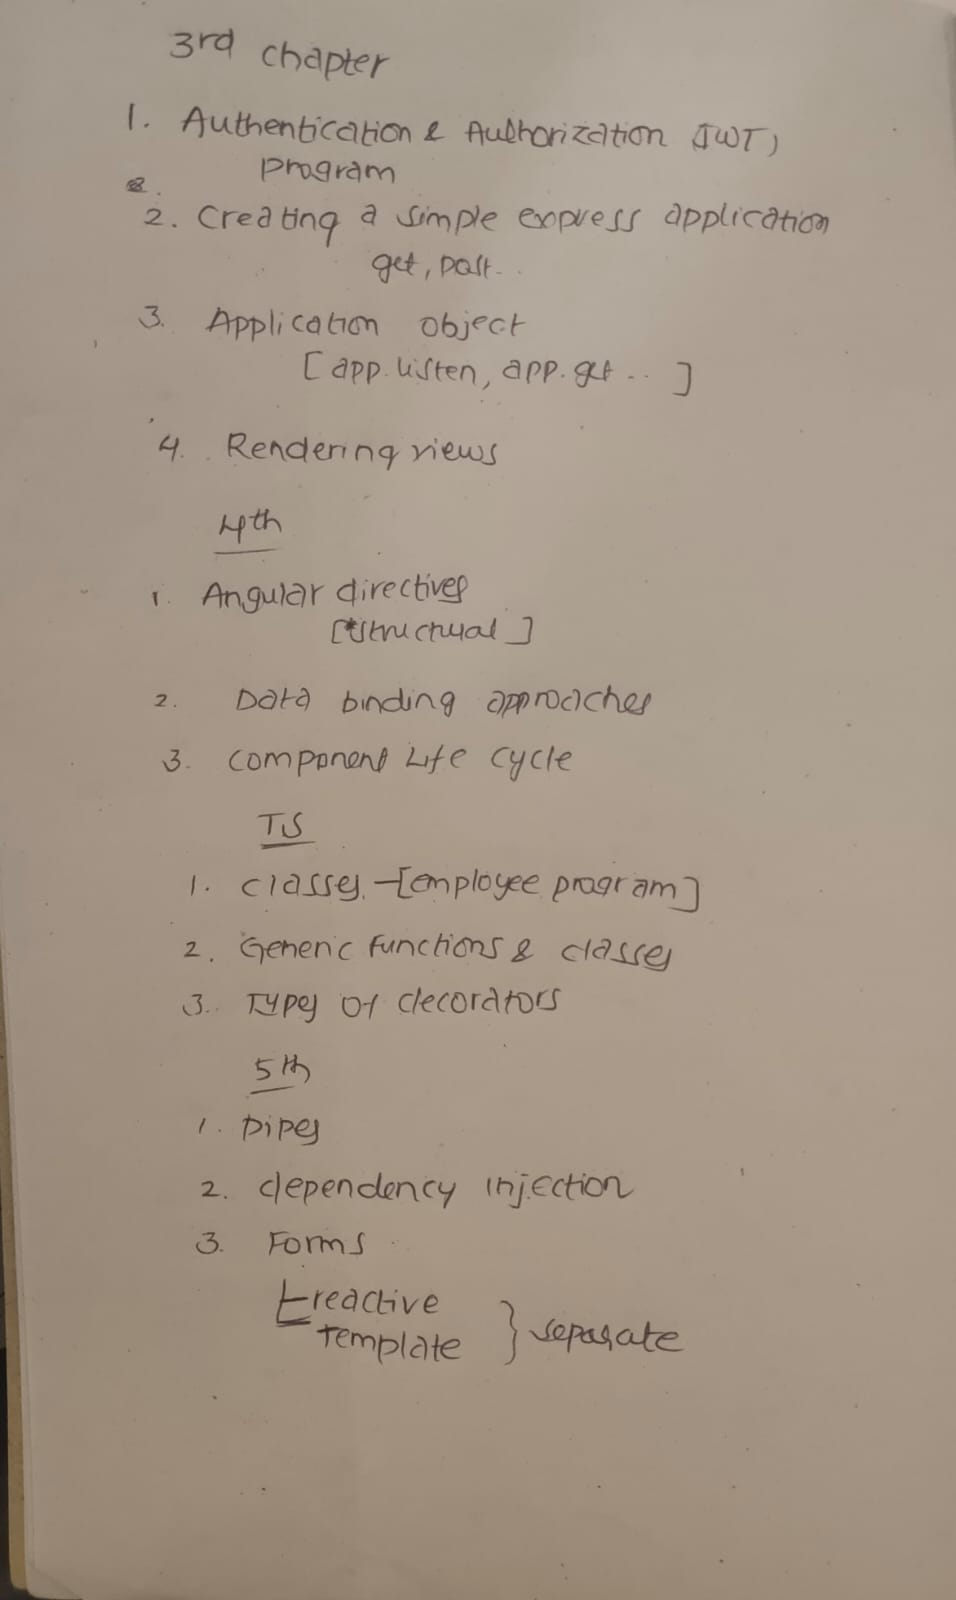 3rd chapter
1. Authentication & Authorization (JWT)
program
2. Creating a simple express application
get, post..
3. Application object
[app.listen, app.get .. ]
4. Rendering views
4th
1. Angular directives
[structual]
2. Data binding approaches
3. component Life cycle
TS
1. classes -[employee program]
2. Generic functions & classes
3. Types of decorators
5th
1. pipes
2. dependency injection
3. Forms
reactive
template } separate